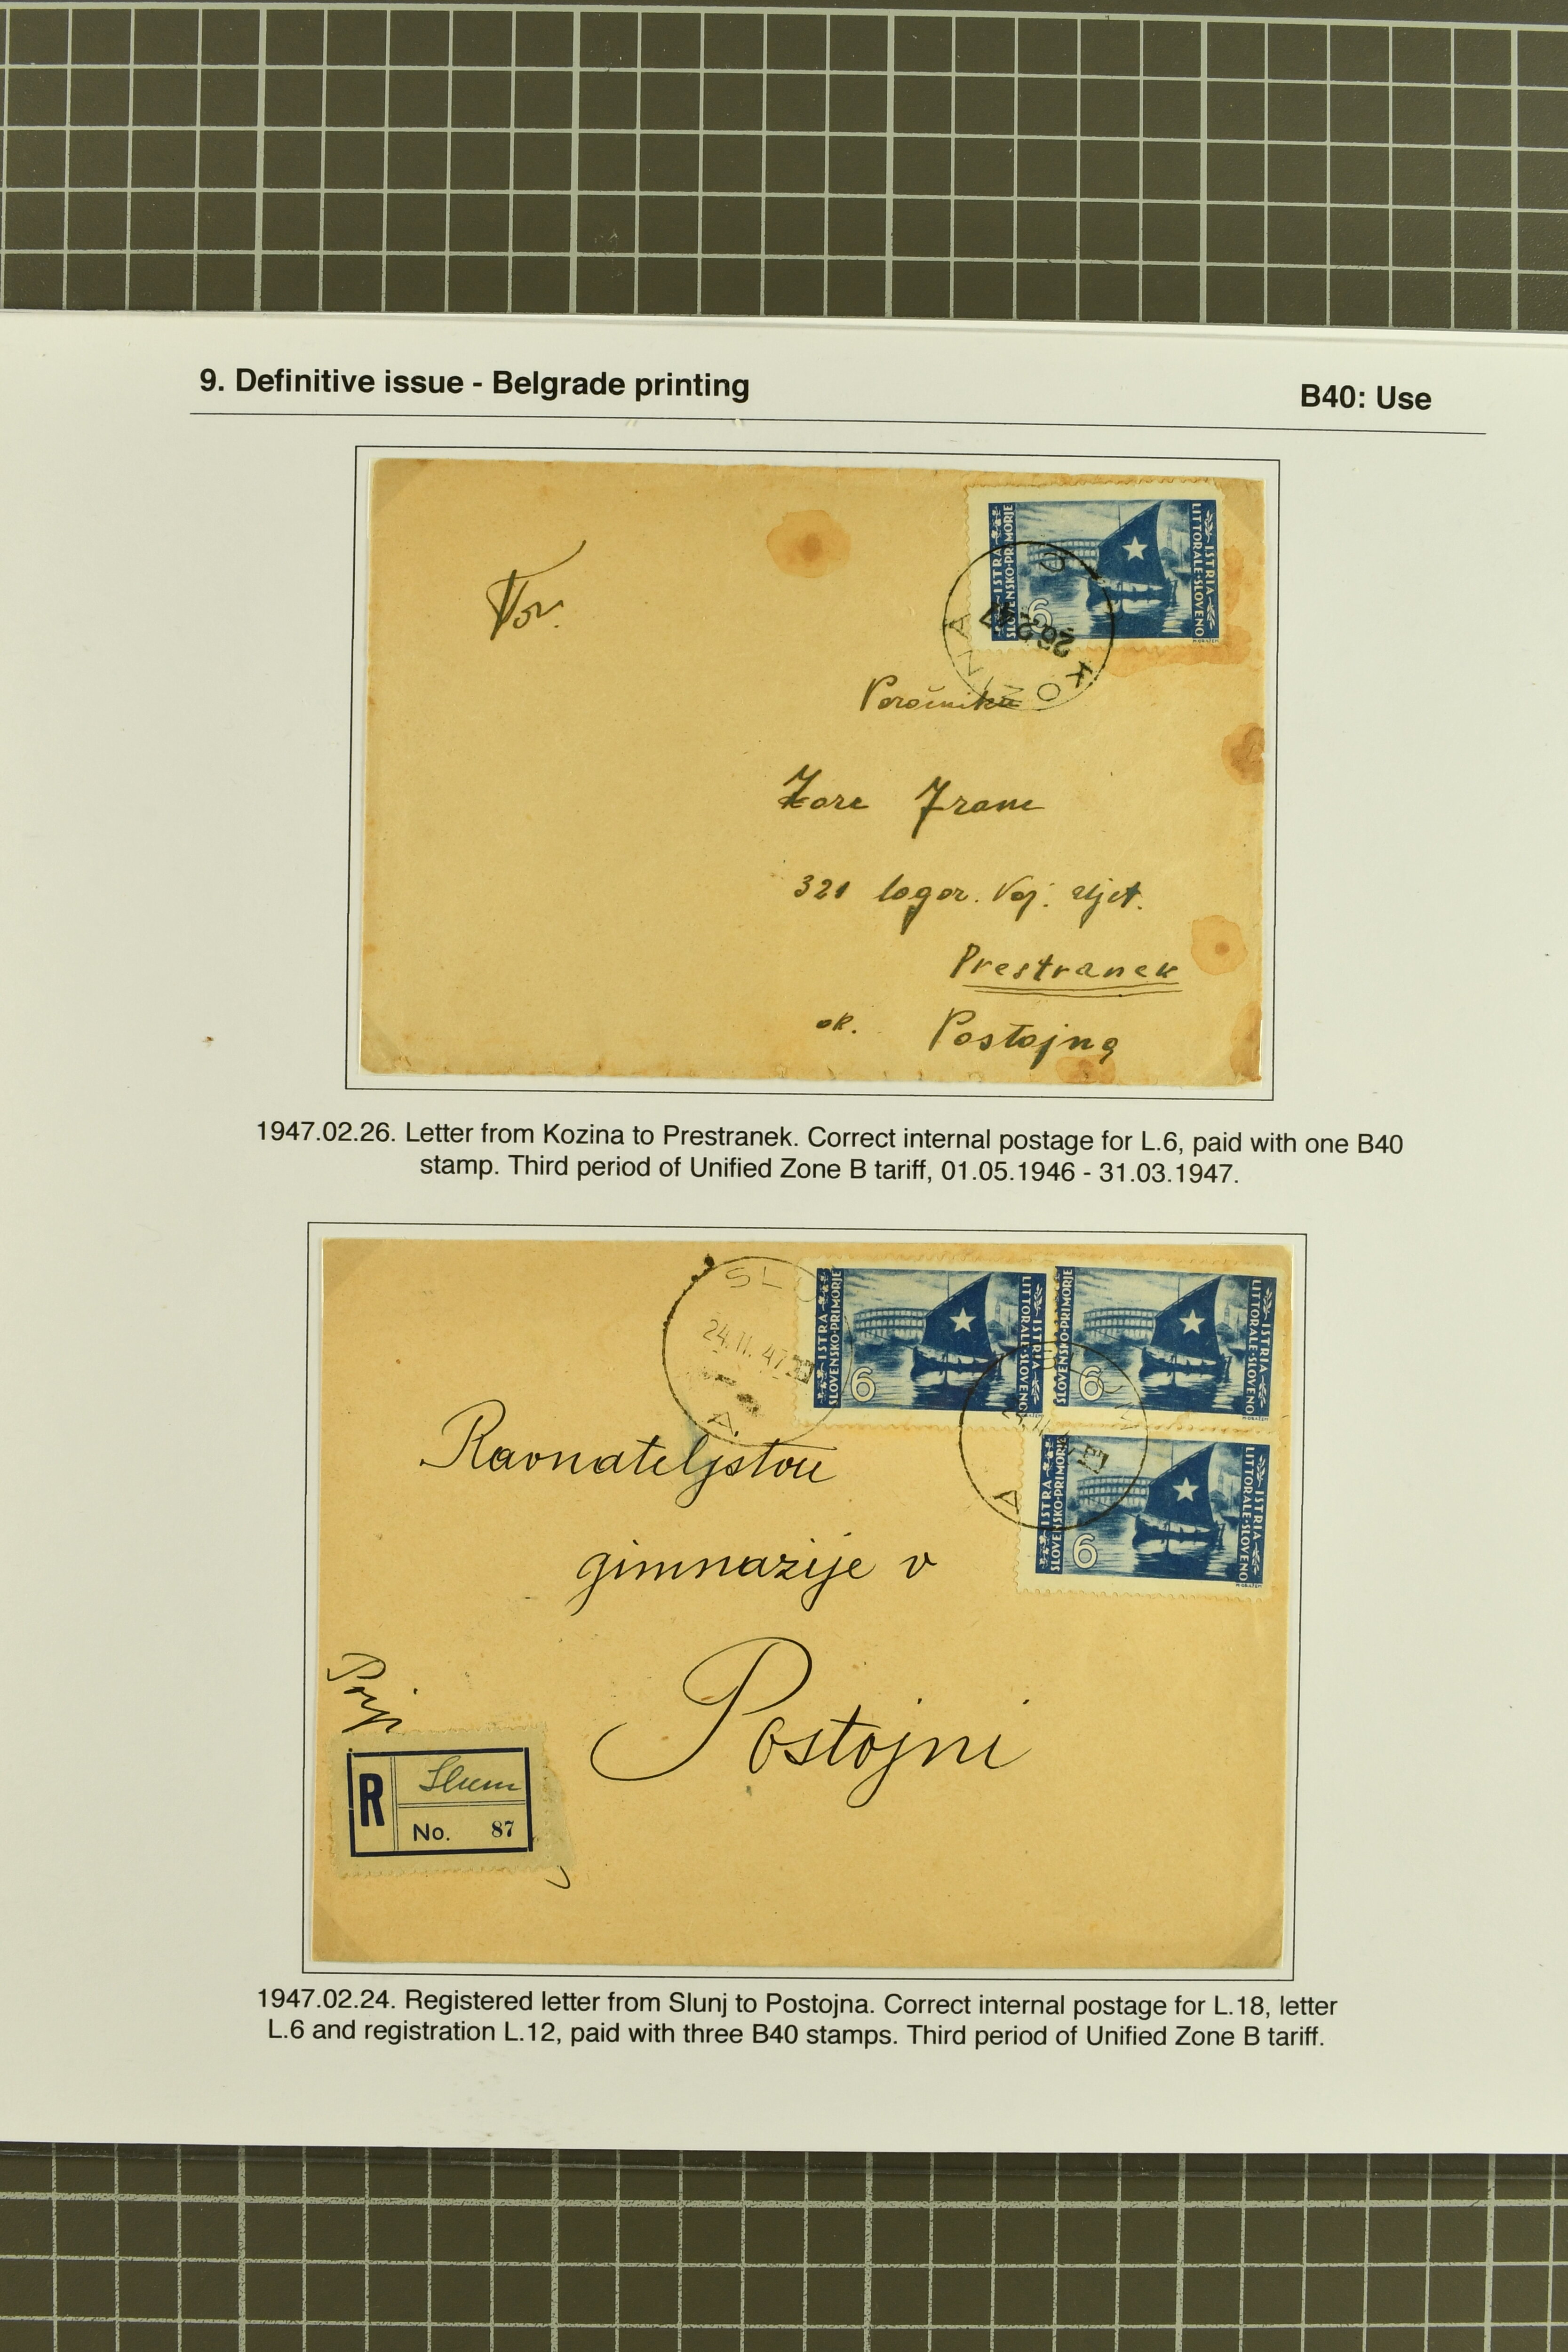 9. Definitive issue - Belgrade printing
B40: Use
ISTRA
SLOVENSKO-PRIMORJE
6
ISTRIA
LITTORALE-SLOVENO
KOZINA
26.2.47
Zore Franc
321 lagor. Voj.
Prestranek
ok. Postojna
1947.02.26. Letter from Kozina to Prestranek. Correct internal postage for L.6, paid with one B40
stamp. Third period of Unified Zone B tariff, 01.05.1946 - 31.03.1947.
SLU
24.II.47
A
ISTRA
SLOVENSKO-PRIMORJE
6
ISTRIA
LITTORALE-SLOVENO
SLOVENSKO-PRIMORJE
6
ISTRIA
LITTORALE-SLOVENO
A
ISTRA
SLOVENSKO-PRIMORJE
6
ISTRIA
LITTORALE-SLOVENO
Ravnateljstvu
gimnazije v
Postojni
R
Slum
No. 87
1947.02.24. Registered letter from Slunj to Postojna. Correct internal postage for L.18, letter
L.6 and registration L.12, paid with three B40 stamps. Third period of Unified Zone B tariff.